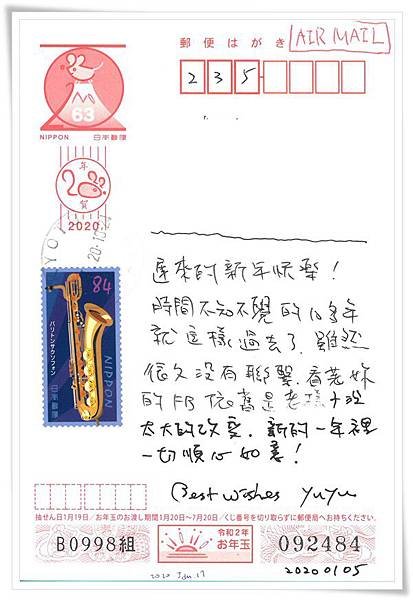 郵便はがき
AIR MAIL
235
63
NIPPON 日本郵便
年
賀
2020
84
バリトンサクソフォン
NIPPON
日本郵便
遲來的新年快樂!
時間不知不覺的10多年
就這樣過去了,雖然
很久沒有聯繫,看著妳
的FB依舊是老樣子沒
太大的改變,新的一年裡
一切順心如意!
Best wishes yuyu
抽せん日1月19日/お年玉のお渡し期間1月20日~7月20日/くじ番号を切り取らずに郵便局へお持ちください。
B0998組
令和2年
お年玉
092484
2020 Jan.17
20200105